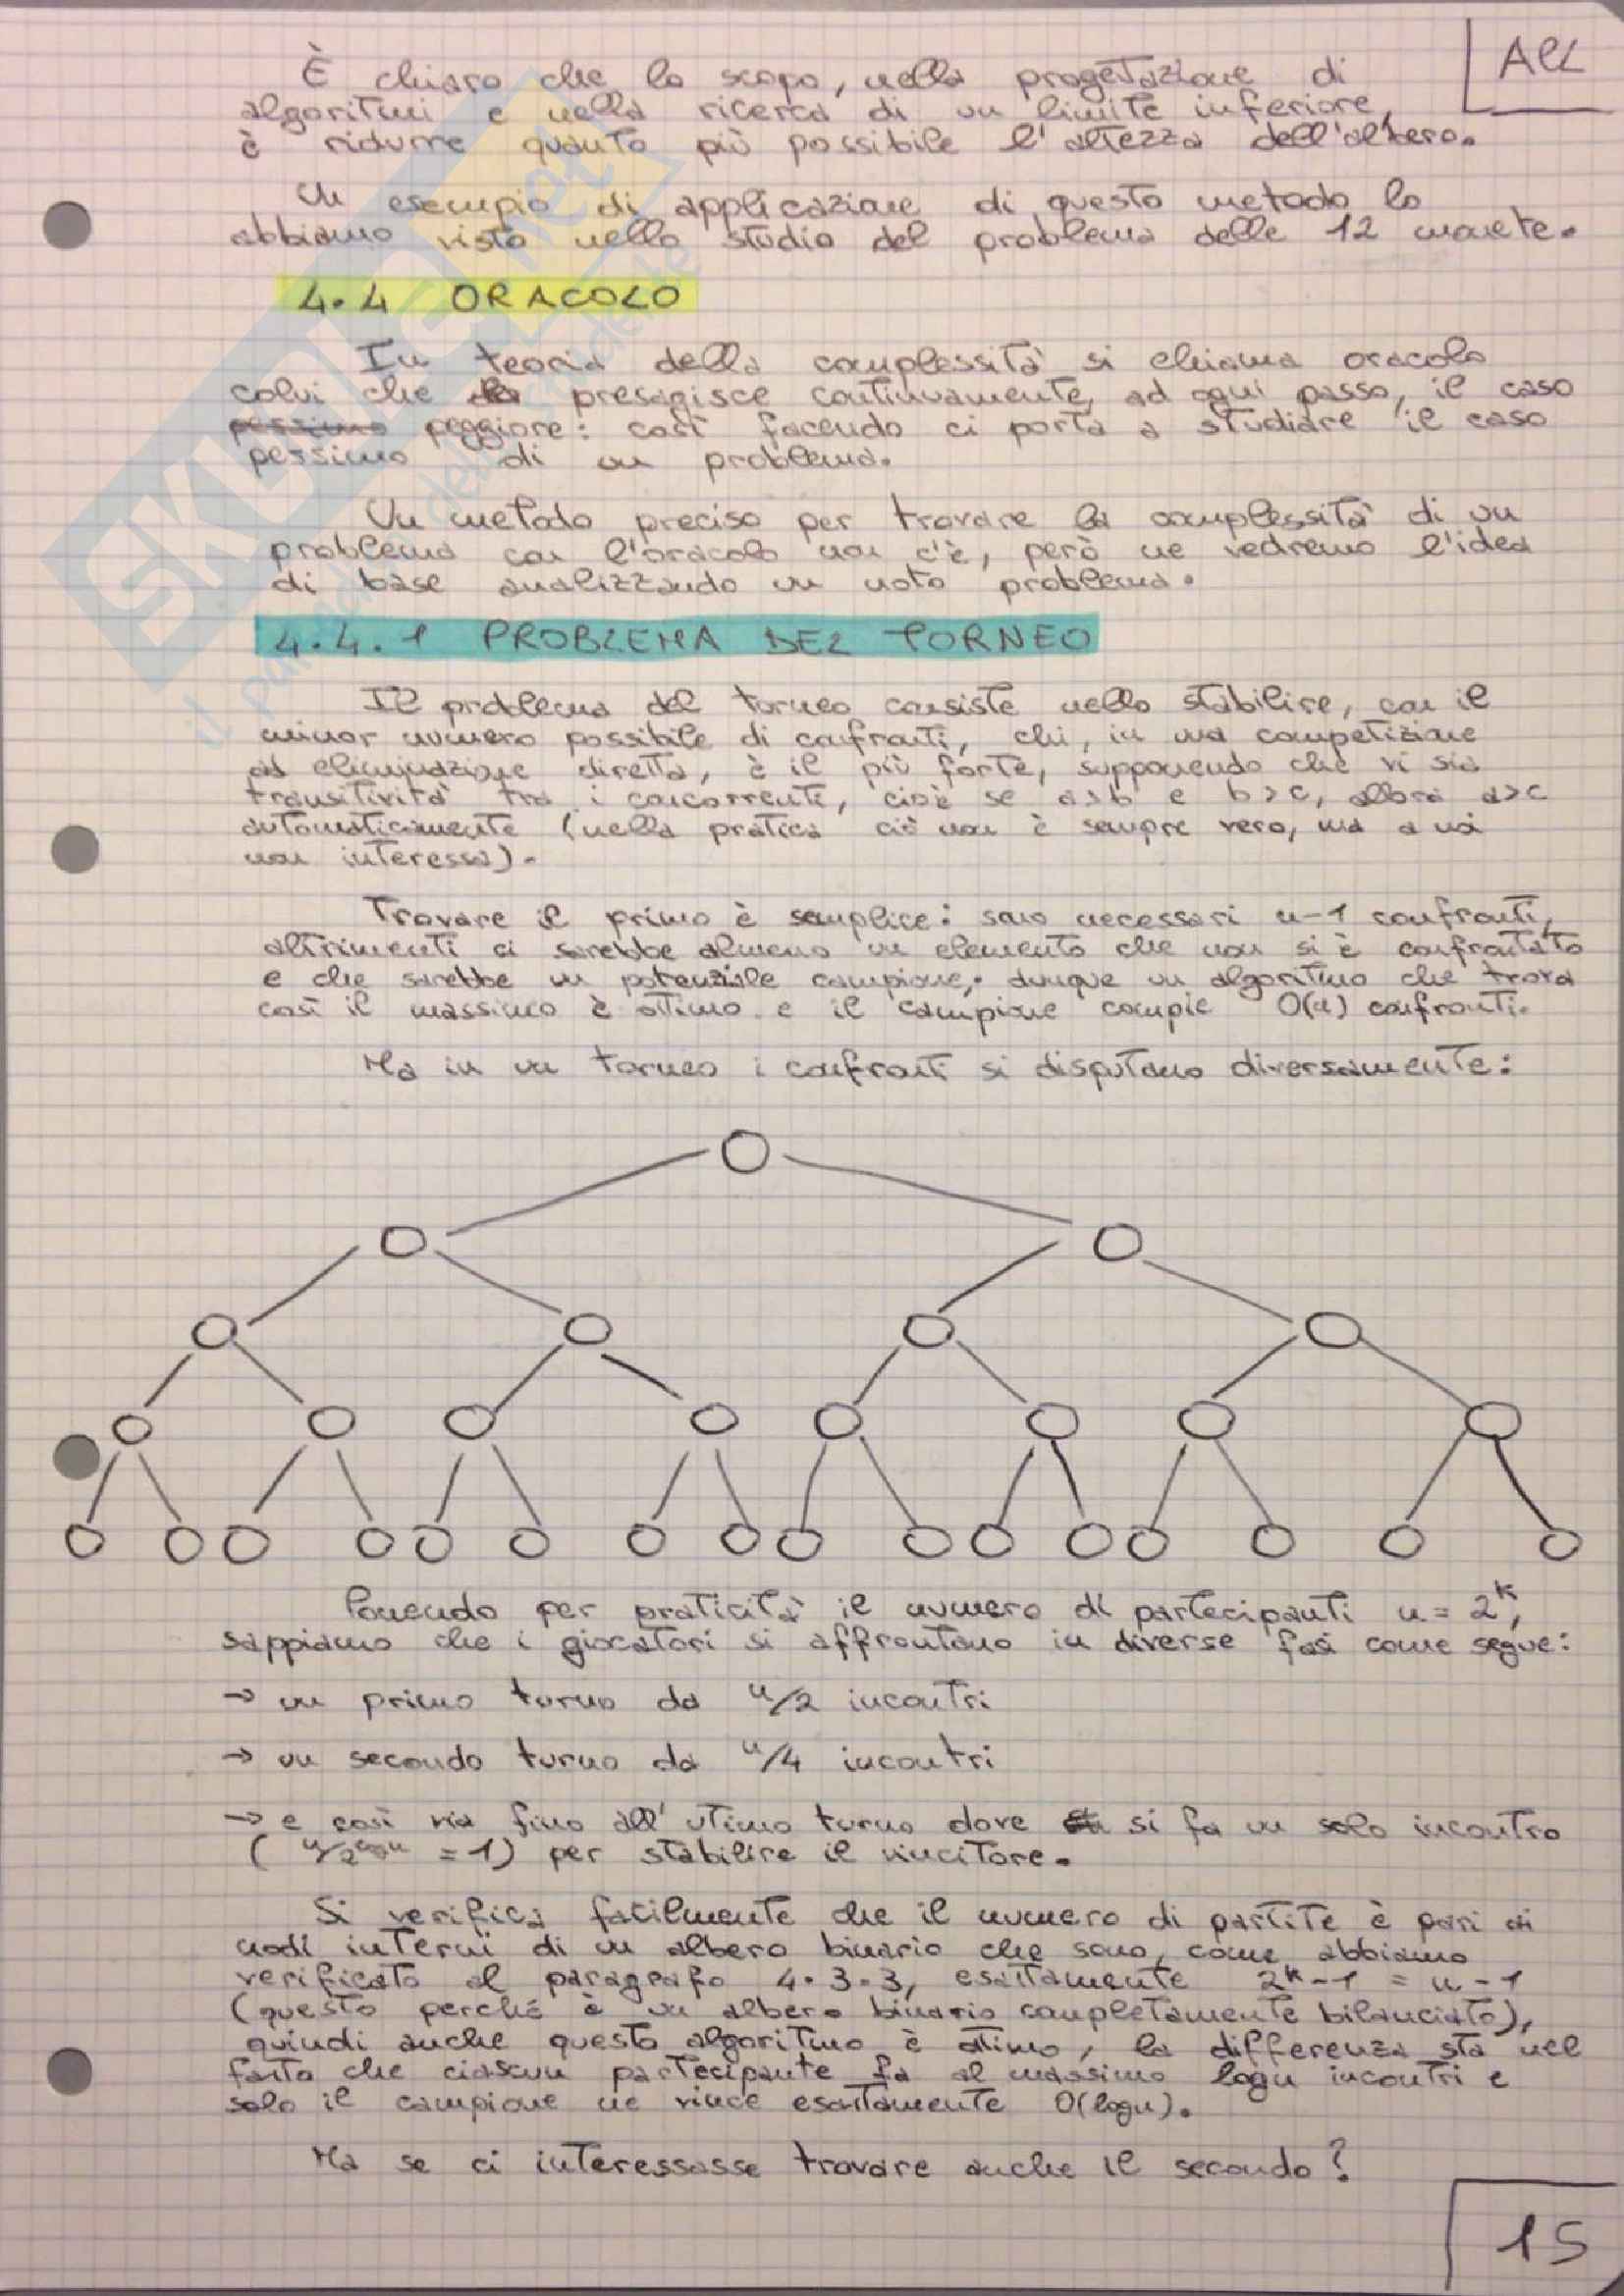 ALL
È chiaro che lo scopo, nella progettazione di
algoritmi e nella ricerca di un limite inferiore,
è ridurre quanto più possibile l'altezza dell'albero.
Un esempio di applicazione di questo metodo lo
abbiamo visto nello studio del problema delle 12 monete.
4.4 ORACOLO
In teoria della complessità si chiama oracolo
colui che presagisce continuamente, ad ogni passo, il caso
pessimo peggiore: così facendo ci porta a studiare il caso
pessimo di un problema.
Un metodo preciso per trovare la complessità di un
problema con l'oracolo non c'è, però ne vedremo l'idea
di base analizzando un noto problema.
4.4.1 PROBLEMA DEL TORNEO
Il problema del torneo consiste nello stabilire, con il
minor numero possibile di confronti, chi, in una competizione
ad eliminazione diretta, è il più forte, supponendo che vi sia
transitività tra i concorrenti, cioè se a>b e b>c, allora a>c
automaticamente (nella pratica ciò non è sempre vero, ma a noi
non interessa).
Trovare il primo è semplice: sono necessari n-1 confronti,
altrimenti ci sarebbe almeno un elemento che non si è confrontato
e che sarebbe un potenziale campione; dunque un algoritmo che trova
così il massimo è ottimo e il campione compie O(n) confronti.
Ma in un torneo i confronti si disputano diversamente:
Ponendo per praticità il numero di partecipanti n = 2^k,
sappiamo che i giocatori si affrontano in diverse fasi come segue:
→ un primo turno da n/2 incontri
→ un secondo turno da n/4 incontri
→ e così via fino all'utimo turno dove si fa un solo incontro
( n/2^logn = 1) per stabilire il vincitore.
Si verifica facilmente che il numero di partite è pari ai
nodi interni di un albero binario che sono, come abbiamo
verificato al paragrafo 4.3.3, esattamente 2^k-1 = n-1
(questo perché è un albero binario completamente bilanciato),
quindi anche questo algoritmo è ottimo, la differenza sta nel
fatto che ciascun partecipante fa al massimo logn incontri e
solo il campione ne vince esattamente O(logn).
Ma se ci interessasse trovare anche il secondo?
15